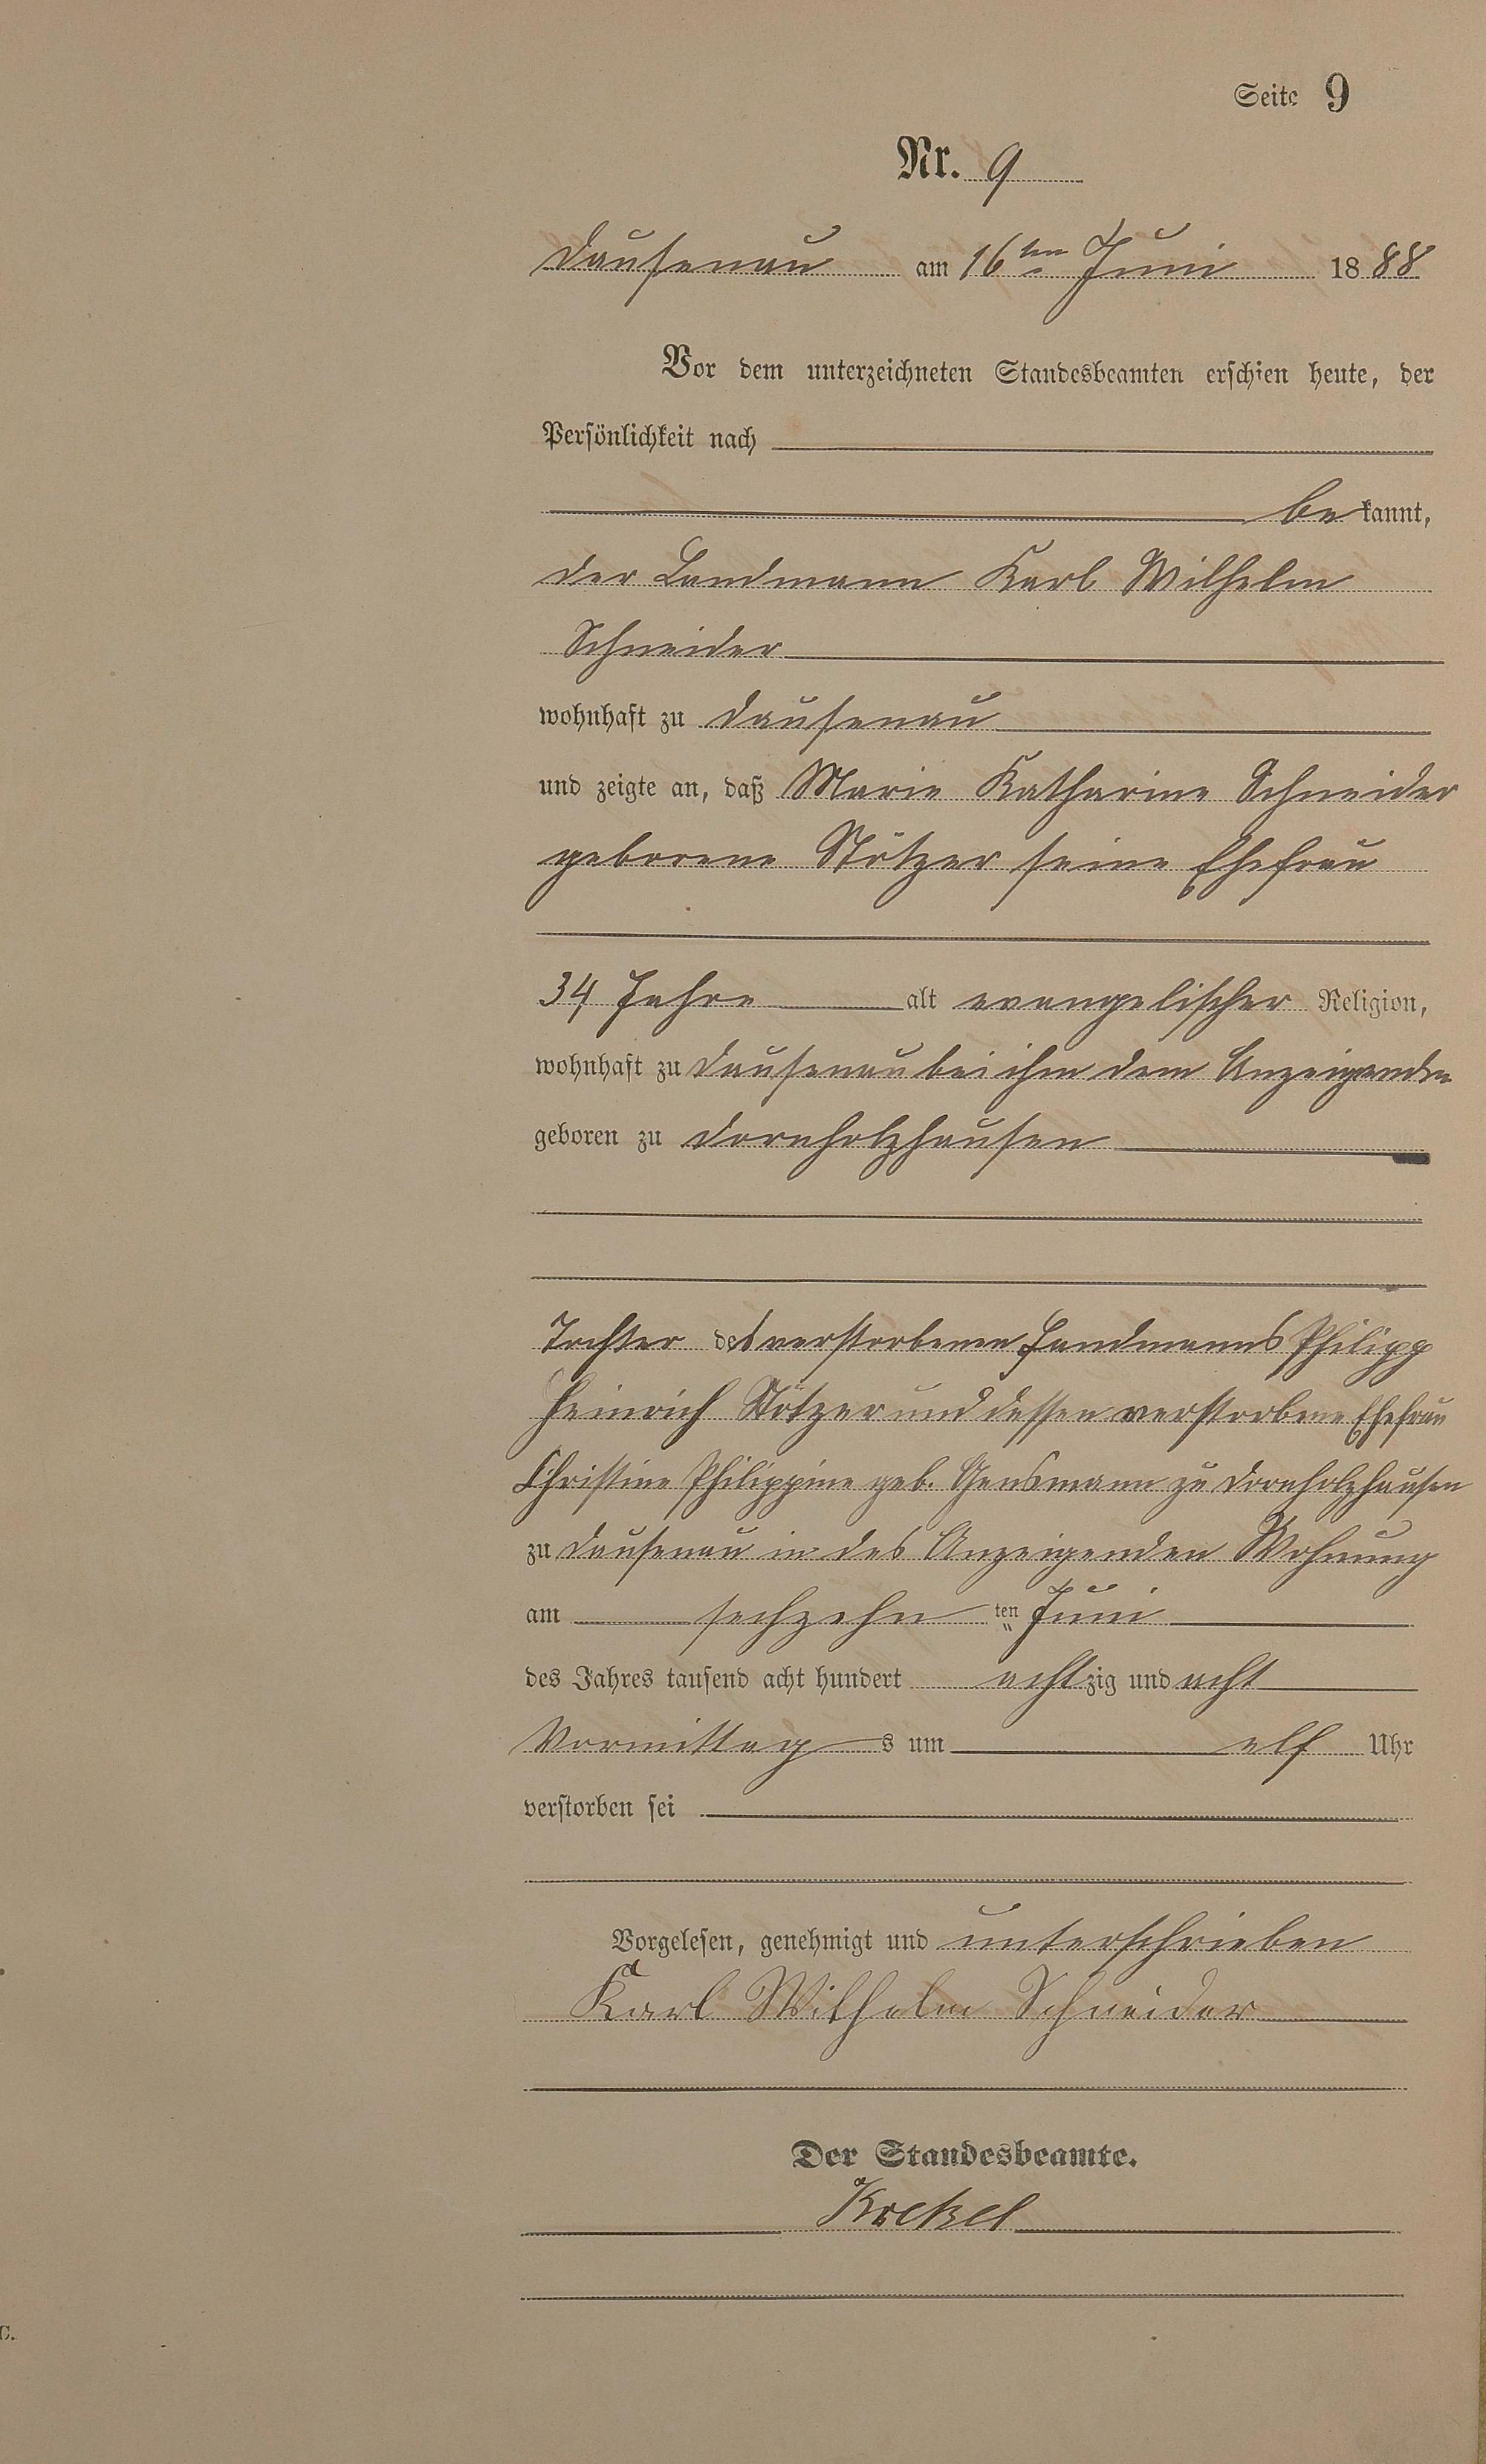 Seite 9
Nr. 9
Dausenau am 16ten Juni 1888
Vor dem unterzeichneten Standesbeamten erschien heute, der
Persönlichkeit nach
bekannt,
der Landmann Karl Wilhelm
Schneider
wohnhaft zu Dausenau
und zeigte an, daß Marie Katharine Schneider
geborene Stötzer seine Ehefrau
34 Jahre alt evangelischer Religion,
wohnhaft zu Dausenau bei ihm dem Anzeigenden
geboren zu Dornholzhausen
Tochter des verstorbenen Landmanns Philipp
Heinrich Stötzer und dessen verstorbene Ehefrau
Christine Philippine geb. zu Dornholzhausen
zu Dausenau in des Anzeigenden Wohnung
am sechzehn ten Juni
des Jahres tausend acht hundert achtzig und acht
Vormittags um elf Uhr
verstorben sei
Vorgelesen, genehmigt und unterschrieben
Karl Wilhelm Schneider
Der Standesbeamte.
Krekel
C.